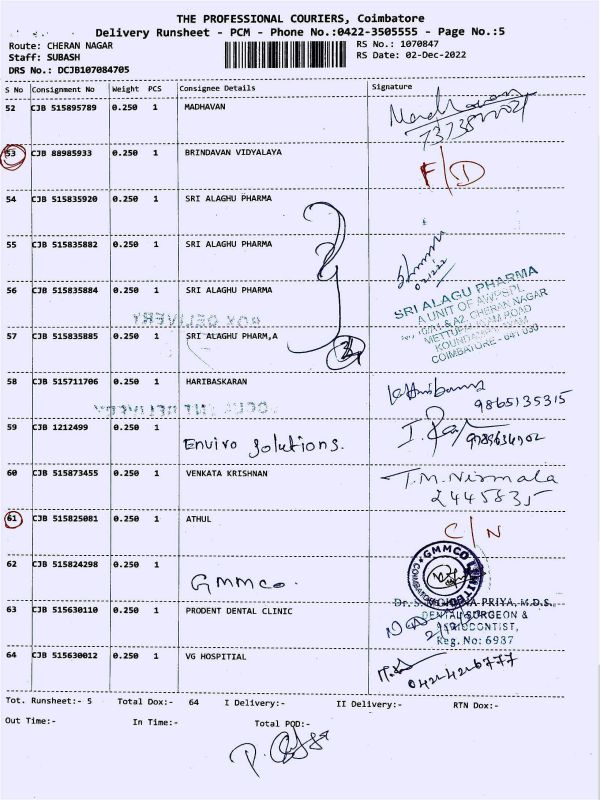 THE PROFESSIONAL COURIERS, Coimbatore
Delivery Runsheet - PCM - Phone No.:0422-3505555 - Page No.:5
Route: CHERAN NAGAR RS No.: 1070847
Staff: SUBASH RS Date: 02-Dec-2022
DRS No.: DCJB107084705
S No Consignment No Weight PCS Consignee Details Signature
52 CJB 515895789 0.250 1 MADHAVAN
53 CJB 88985933 0.250 1 BRINDAVAN VIDYALAYA F/D
54 CJB 515835920 0.250 1 SRI ALAGHU PHARMA
55 CJB 515835882 0.250 1 SRI ALAGHU PHARMA
56 CJB 515835884 0.250 1 SRI ALAGHU PHARMA
SRI ALAGU PHARMA
A UNIT OF AWPSPL
CHERAN NAGAR
METTUPALAYAM ROAD
COIMBATORE - 641 030
57 CJB 515835885 0.250 1 SRI ALAGHU PHARM,A
58 CJB 515711706 0.250 1 HARIBASKARAN
9865135315
59 CJB 1212499 0.250 1 Enviro Solutions.
60 CJB 515873455 0.250 1 VENKATA KRISHNAN T.M. Nirmala
2445835
61 CJB 515825081 0.250 1 ATHUL C/N
62 CJB 515824298 0.250 1 GMMCO. GMMCO LIMITED
63 CJB 515630110 0.250 1 PRODENT DENTAL CLINIC
PRIYA, M.D.S.
DENTAL SURGEON &
Reg. No: 6937
64 CJB 515630012 0.250 1 VG HOSPITIAL 0424226777
Tot. Runsheet:- 5 Total Dox:- 64 I Delivery:- II Delivery:- RTN Dox:-
Out Time:- In Time:- Total POD:-